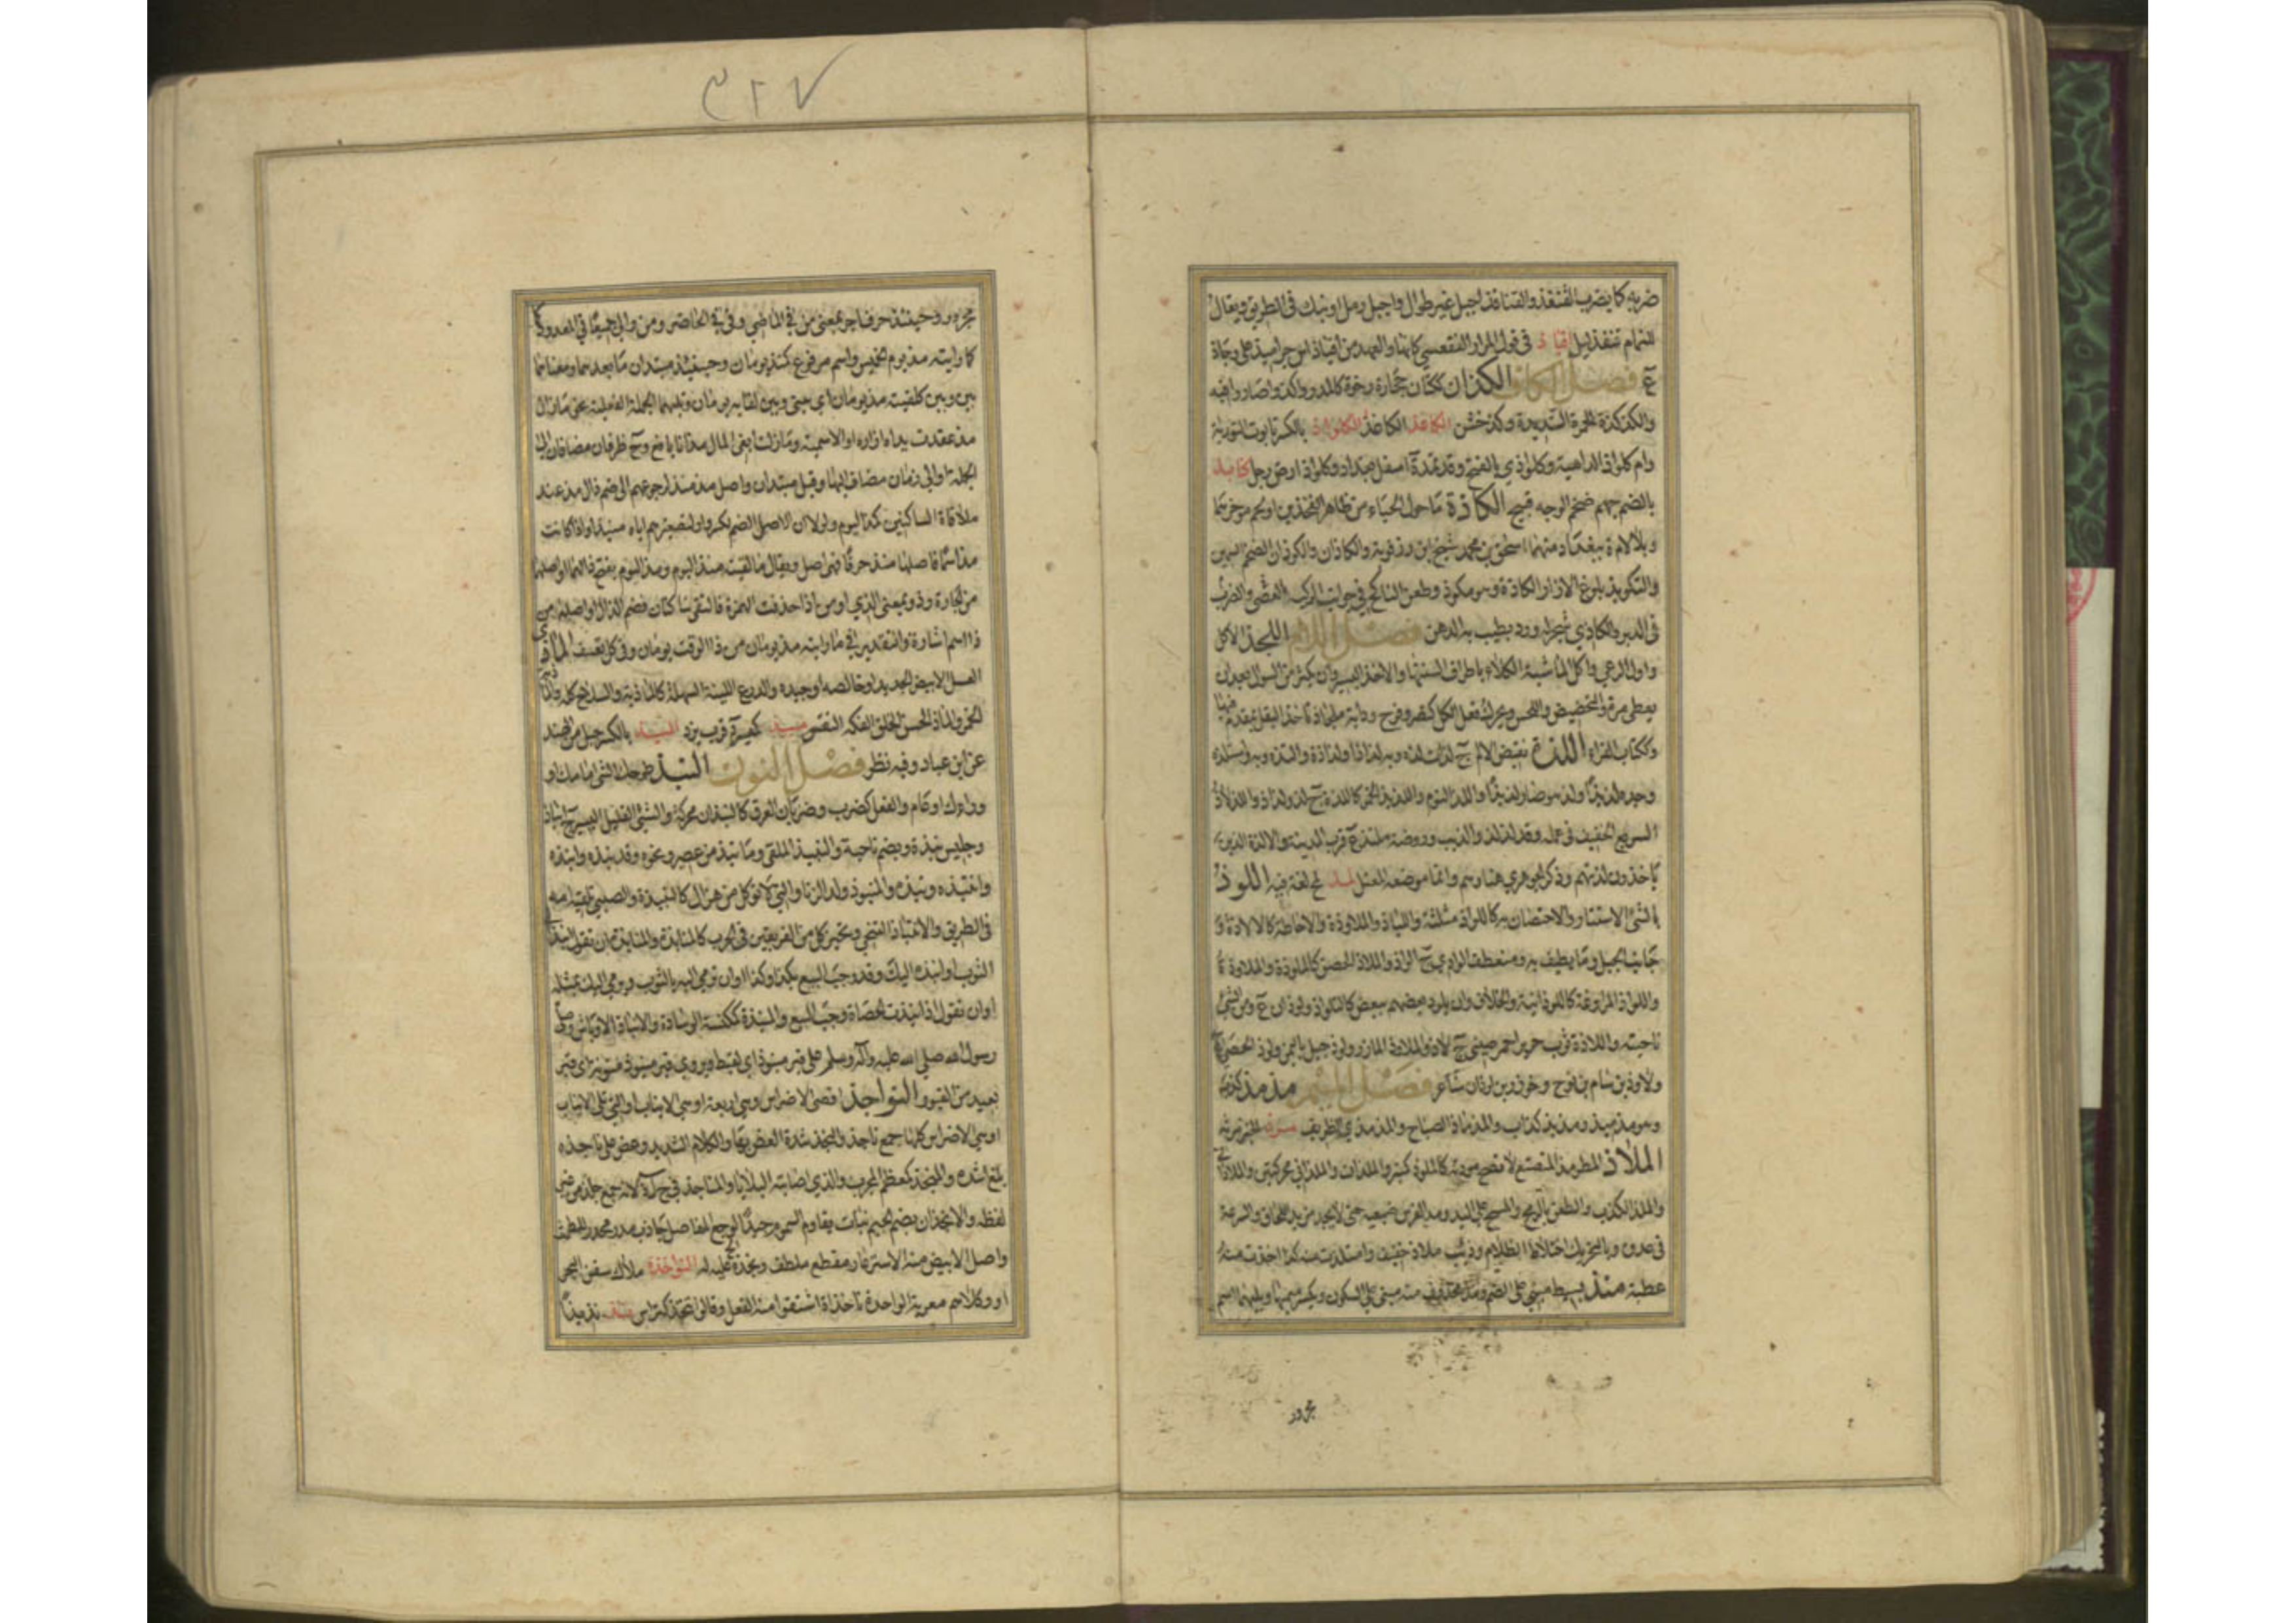 ضربه كما يضرب القنفذ والقنافذ اجبل غير طوال واجبل رمل او نبك فى الطريق ويقال
للنمام قنفذ ليل اقتياذ فى قول المرار الفقعسى
فصل الكاف الكذان ككتان حجارة رخوة كالمدر واكذ واصار وا فيه
والكذكذة الحمرة الشديدة وكذ خشن الكاغذ الكاغد الكلواذ بالكسر تابوت التورية
وام كلواذ الداهية وكلواذى بالفتح وقد تمد ة اسفل بغداد وكلواذ ارض رجل كنابذ
بالضم جهم ضخم الوجه قبيح الكاذة ما حول الحياء من ظاهر الفخذين او لحم مؤخرهما
وبلا لام ة ببغداد منها اسحق بن محمد شيخ ابن رزقوية والكاذان والكوذان الضخم السمين
والتكويذ بلوغ الازار الكاذة وهو مكوذ وطعن الناكح فى جوانب الركب العضى والضرب
فى الدبر والكاذى شجر له ورد يطيب به الدهن فصل اللام اللجذ الاكل
واول الرعى واكل الماشية الكلاء باطراف السنتها والاخذ اليسير وان يكثر من السؤال بعد ان
يعطى مرة والتحضيض واللحس ويحرك وفعل الكل كنصر وفرح ودابة ملجاذ تاخذ البقل بمقدم فمها
وككتاب الغراء اللذة نقيض الالم ج لذات لذه وبه لذاذا ولذاذة والتذه وبه واستلذه
وجده لذيذا ولذ هو صار لذيذا واللذ النوم واللذيذ الخمر كاللذة ج لذ ولذاذ واللذلاذ
السريع الخفيف فى عمله وقد لذلذ والذئب وروضة ملتذ ع قرب المدينة والالذة الذين
ياخذون لذتهم وذكر الجوهرى هنا وهم وانما موضعه المعتل لمذ لغة فيه اللوذ
بالشئ الاستتار والاحتصان به كاللواذ مثلثة واللياذ والملاوذة والاحاطة كالالاذة و
جانب الجبل وما يطيف به ومنعطف الوادى ج الواذ والملاذ الحصن كالملوذة والملاوذة
واللواذ المراوغة كاللوذانية والخلاف وان يلوذ بعضهم ببعض كالتلواذ ولوذان ع ومن الشئ
ناحيته واللاذة ثوب حرير احمر صينى ج لاذ والملاوذ المآزر ولوذ جبل باليمن ولوذ الحصى ع
ولاوذ بن سام بن نوح وخرق وبن لوذان شاعر فصل الميم مذمذ كذب
وهو مذميذ ومذيذ كذاب والمذماذ الصياح والمذمذى الظريف مرذ الخبز مرثه
الملاذ المطرمذ المتصنع لا تصح مودته كالملوذ كمنبر والملذان والملذانى محركتين والملاذانى
والملذ الكذب والطعن بالرمح والمسح على اليد ومد الفرس ضبعيه حتى لا يجد مزيدا للحاق والسرعة
فى عدوه وبالتحريك اختلاط الظلام وذئب ملاذ خفيف وامتلذت منه كذا اخذت منه
عطية منذ بسيط مبنى على الضم ومذ محذوف منه مبنى على السكون ويكسر ميمهما ويليهما اسم
مجرور
٣٢٧
مجرور وحينئذ حرفا جر بمعنى من فى الماضى وفى فى الحاضر ومن والى جميعا فى المعدود
كما رايته مذ يوم الخميس واسم مرفوع كمنذ يومان وحينئذ مبتدان ما بعدهما ومعناهما
بين وبين كلقيته مذ يومان اى بينى وبين لقايه يومان ويليهما الجملة الفعلية نحو ما زال
مذ عقدت يداه ازاره او الاسمية وما زلت ابغى المال مذ انا يافع وح ظرفان مضافان الى
الجملة او الى زمان مضاف اليها وقيل مبتدان واصل مذ منذ لرجوعهم الى ضم ذال مذ عند
ملاقاة الساكنين كمذ اليوم ولولا ان الاصل الضم لكسروا ولتصغيرهم اياه منيذ او اذا كانت
مذ اسما فاصلها منذ حرفا فهى اصل ويقال ما لقيته منذ اليوم ومذ اليوم بفتح ذالهما او اصلها
من الجارة وذو بمعنى الذى او من اذا حذفت الهمزة فالتقى ساكنان فضم الذال او اصلها من
ذا اسم اشارة والتقدير فى ما رايته مذ يومان من ذا الوقت يومان وفى كل تعسف الماذى
العسل الابيض الجديد او خالصه او جيده والدرع اللينة السهلة كالماذية والسلاح كله
الخمر والماذ الحسن الخلق الفكه النفس ميبذ كميسرة قرب يزد الميذ بالكسر جيل من الهند
عن ابن عباد وفيه نظر فصل النون النبذ طرحك الشئ امامك او
وراءك او عام والفعل كضرب وضربان العرق كالنبذان محركة والشئ القليل اليسير ج انباذ
وجلس نبذة ويضم ناحية والنبيذ الملقى وما نبذ من عصير ونحوه وقد نبذه وانبذه
وانتبذه ونبذه والمنبوذ ولد الزنا والتى لا تؤكل من هزال كالنبيذة والصبى تلقيه امه
فى الطريق والانتباذ التنحى وتحيز كل من الفريقين فى الحرب كالمنابذة والمنابذة ان تقول انبذ
الثوب او انبذه اليك وقد وجب البيع بكذا وكذا او ان ترمى اليه بالثوب ويرمى اليك بمثله
او ان تقول اذا نبذت الحصاة وجب البيع والمنبذة ككنسة الوسادة والانباذ الاوباش وصلى
رسول الله صلى الله عليه وآله وسلم على قبر منبوذ اى لقيط ويروى قبر منبوذ منونة اى قبر
بعيد من القبور النواجذ اقصى الاضراس وهى اربعة او هى الانياب او التى تلى الانياب
او هى الاضراس كلها جمع ناجذ والنجذ شدة العض بها والكلام الشديد وعض على ناجذه
بلغ اشده والمنجذ كمعظم المجرب والذى اصابته البلايا والمناجذ فى ج ل ذ لانه جمع جلذ من غير
لفظه والانجذان بضم الجيم نبات يقاوم السموم جيد لوجع المفاصل جاذب مدر محدر للطمث
واصل الابيض منه الاشترغاز مقطع ملطف ونجذه الح عليه له النواخذة ملاك سفن البحر
او وكلاؤهم معربة الواحدة ناخذاة اشتقوا منه الفعل وقالوا تنخذ كتراس